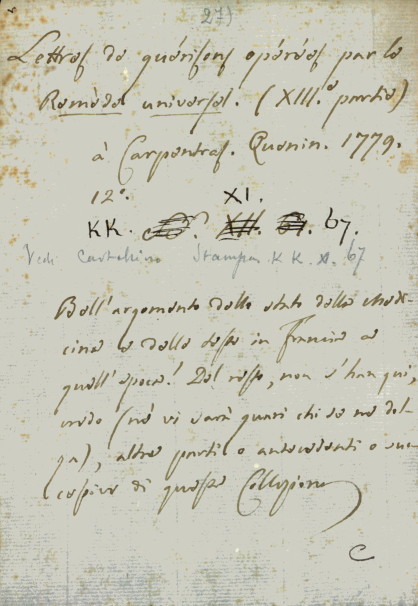 27)
Lettres de guérisons opérées par le
Remède universel. (XIII.e partie)
à Carpentras. Quenin. 1779.
12.° XI.
KK. XII. 67.
Vedi cartellino Stampa KK. XI. 67
Bell'argomento dello stato della medi-
cina e delle teste in Francia a
quell'epoca! Del resto, non s'han qui,
credo (nè vi sarà guari chi se ne dol-
ga), altre parti o antecedenti o suc-
cessive di questa Collezione
C